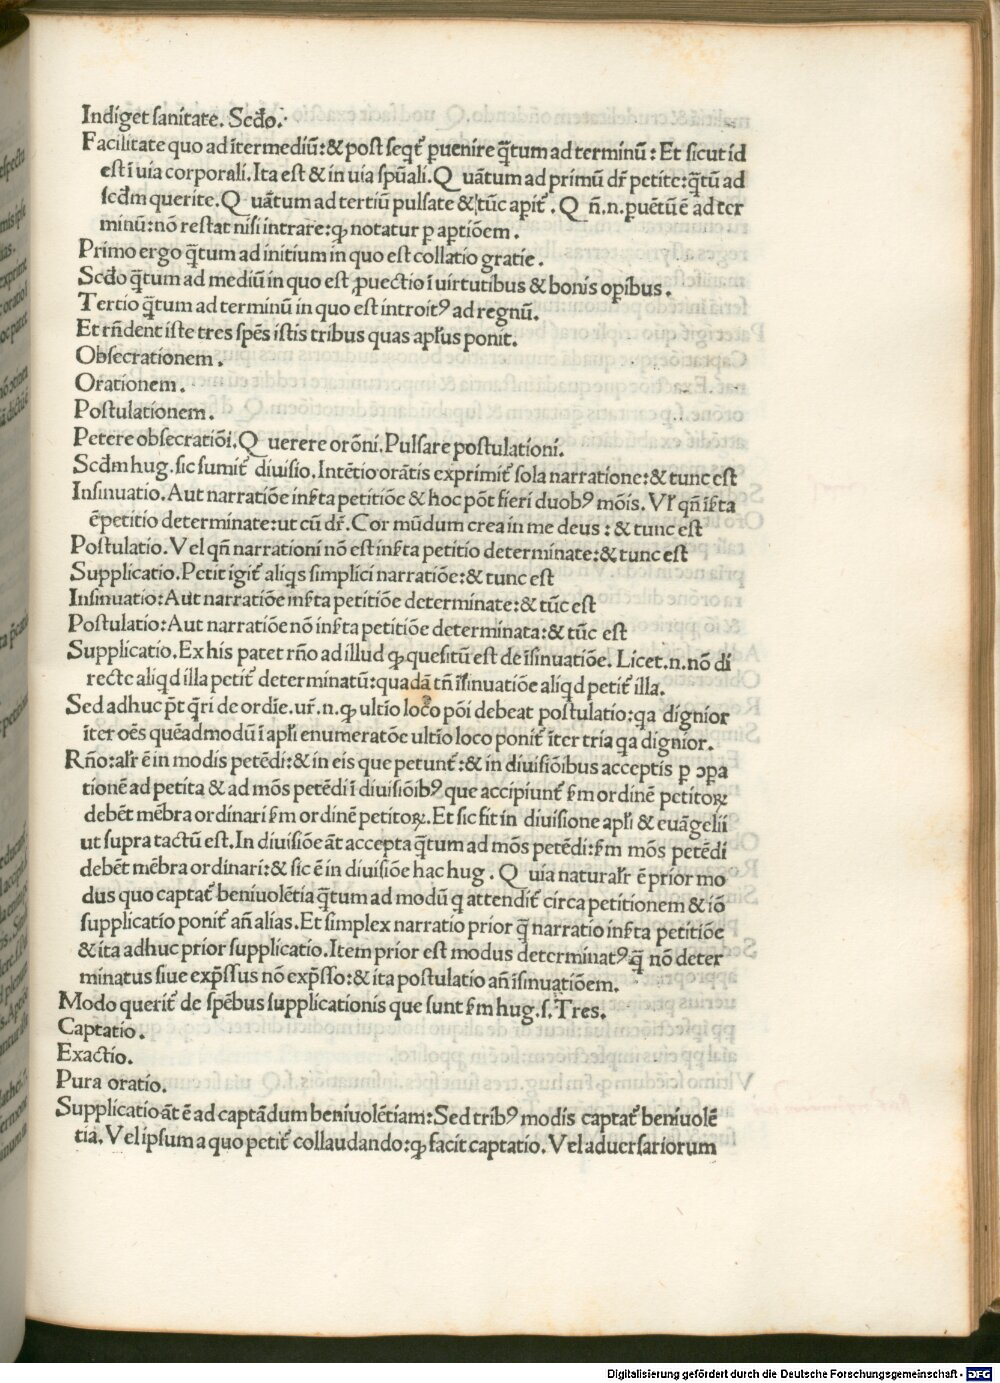 Indiget sanitate. Scḋo.
Facilitate quo ad ĩtermediũ:& post seqt᷑ ꝑuenire q̃tum ad terminũ: Et sicut id
est ĩ uia corporali. Ita est & in uia spũali. Q uãtum ad primũ dr̃ petite:q̃tũ ad
scḋm querite. Q uãtum ad tertiũ pulsate & tũc apit᷑. Q ñ.n.ꝑuẽtũ ẽ ad ter
minũ:nõ restat nisi intrare:ꝙ notatur ꝑ aptiõem.
Primo ergo q̃tum ad initium in quo est collatio gratie.
Scḋo q̃tum ad mediũ in quo est ꝓuectio ĩ uirtutibus & bonis oꝑibus.
Tertio q̃tum ad terminũ in quo est introitꝰ ad regnũ.
Et rñdent iste tres spẽs istis tribus quas apl̃us ponit.
Obsecrationem.
Orationem.
Postulationem.
Petere obsecratiõi. Q uerere orõni. Pulsare postulationi.
Scḋm hug. sic sumit᷑ diuisio. Intẽtio orãtis exprimit᷑ sola narratione:& tunc est
Insinuatio. Aut narratiõe inserta petitiõe & hoc põt fieri duobꝰ mõis. Vl̃ qñ iserta
ẽpetitio determinate:ut cũ dr̃. Cor mũdum crea in me deus: & tunc est
Postulatio. Vel qñ narrationi nõ est inserta petitio determinate:& tunc est
Supplicatio. Petit igit᷑ aliqs simplici narratiõe:& tunc est
Insinuatio: Aut narratiõe inserta petitiõe determinate:& tũc est
Postulatio: Aut narratiõe nõ inserta petitiõe determinata:& tũc est
Supplicatio. Ex his patet rño ad illud ꝙ quesitũ est de ĩsinuatiõe. Licet.n.nõ di
recte aliqd illa petit᷑ determinatũ:quadã tñ ĩsinuatiõe aliqd petit᷑ illa.
Sed adhuc p̃t q̃ri de ordĩe. ur̃.n.ꝙ ultĩo loco põi debeat postulatio:qa dignior
ĩter oẽs quẽadmodũ ĩ apl̃i enumeratõe ultĩo loco ponit᷑ ĩter tria qa dignior.
Rño:alr̃ ẽ in modis petẽdi:& in eis que petunt᷑:& in diuisiõibus acceptis ꝑ ꝯꝑa
tionẽ ad petita & ad mõs petẽdi ĩ diuisiõibꝰ que accipiunt᷑ fm ordinẽ petitoꝝ
debẽt mẽbra ordinari fm ordinẽ petitoꝝ. Et sic fit in diuisione apl̃i & euãgelii
ut supra tactũ est. In diuisiõe ãt accepta q̃tum ad mõs petẽdi:fm mõs petẽdi
debẽt mẽbra ordinari:& sic ẽ in diuisiõe hac hug. Q uia naturalr̃ ẽ prior mo
dus quo captat᷑ beniuolẽtia q̃tum ad modũ q attendit᷑ circa petitionem & iõ
supplicatio ponit᷑ añ alias. Et simplex narratio prior q̃ narratio inserta petitiõe
& ita adhuc prior supplicatio. Item prior est modus determinatꝰ q̃ nõ deter
minatus siue exp̃ssus nõ exp̃sso:& ita postulatio añ ĩsinuatiõem.
Modo querit᷑ de spẽbus supplicationis que sunt fm hug.s. Tres.
Captatio.
Exactio.
Pura oratio.
Supplicatio ãt ẽ ad captãdum beniuolẽtiam: Sed tribꝰ modis captat᷑ beniuolẽ
tia. Vel ipsum a quo petit᷑ collaudando:ꝙ facit captatio. Vel aduersariorum
Digitalisierung gefördert durch die Deutsche Forschungsgemeinschaft - DFG